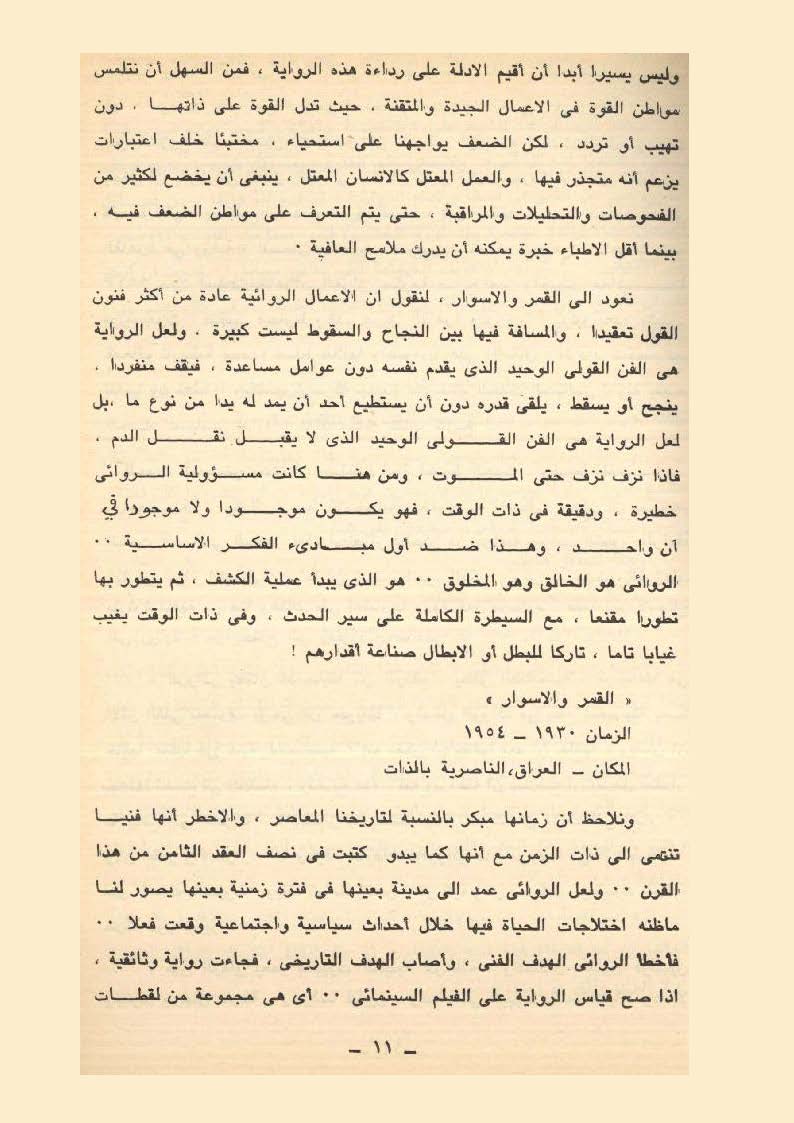 وليس يسيرا أبدا أن أقيم الادلة على رداءة هذه الرواية ، فمن السهل أن نتلمس
مواطن القوة فى الاعمال الجيدة والمتقنة ، حيث تدل القوة على ذاتهـــا ، دون
تهيب أو تردد ، لكن الضعف يواجهنا على استحياء ، مختبئا خلف اعتبارات
يزعم أنه متجذر فيها ، والعمل المعتل كالانسان المعتل ، ينبغى أن يخضع لكثير من
الفحوصات والتحليلات والمراقبة ، حتى يتم التعرف على مواطن الضعف فيـه ،
بينما أقل الاطباء خبرة يمكنه أن يدرك ملامح العافية ٠
نعود الى القمر والاسوار ، لنقول ان الاعمال الروائية عادة من أكثر فنون
القول تعقيدا ، والمسافة فيها بين النجاح والسقوط ليست كبيرة ، ولعل الرواية
هى الفن القولى الوحيد الذى يقدم نفسه دون عوامل مساعدة ، فيقف منفردا ،
ينجح أو يسقط ، يلقى قدره دون أن يستطيع أحد أن يمد له يدا من نوع ما ،بل
لعل الرواية هى الفن القـــــولى الوحيد الذى لا يقبـــل نقـــــل الدم ،
فاذا نزف نزف حتى المـــــوت ، ومن هنـــا كانت مسـؤولية الـــروائى
خطيرة ، ودقيقة فى ذات الوقت ، فهو يكـــون موجـــودا ولا موجودا في
آن واحـــــد ، وهـــذا ضـــد أول مبـــادىء الفكـــر الاساسـية ٠٠
الروائى هو الخالق وهو المخلوق ٠٠ هو الذى يبدأ عملية الكشف ، ثم يتطور بها
تطورا مقنعا ، مع السيطرة الكاملة على سير الحدث ، وفى ذات الوقت يغيب
غيابا تاما ، تاركا للبطل أو الابطال صناعة أقدارهم !
« القمر والاسوار »
الزمان ١٩٣٠ – ١٩٥٤
المكان – العراق،الناصرية بالذات
ونلاحظ أن زمانها مبكر بالنسبة لتاريخنا المعاصر ، والاخطر أنها فنيـــا
تنتمى الى ذات الزمن مع أنها كما يبدو كتبت فى نصف العقد الثامن من هذا
القرن ٠٠ ولعل الروائى عمد الى مدينة بعينها فى فترة زمنية بعينها يصور لنـا
ماظنه اختلاجات الحياة فيها خلال أحداث سياسية واجتماعية وقعت فعلا ٠٠
فأخطأ الروائى الهدف الفنى ، وأصاب الهدف التاريخى ، فجاءت رواية وثائقية ،
اذا صح قياس الرواية على الفيلم السينمائى ٠٠ أى هى مجموعة من لقطـات
– ١١ –